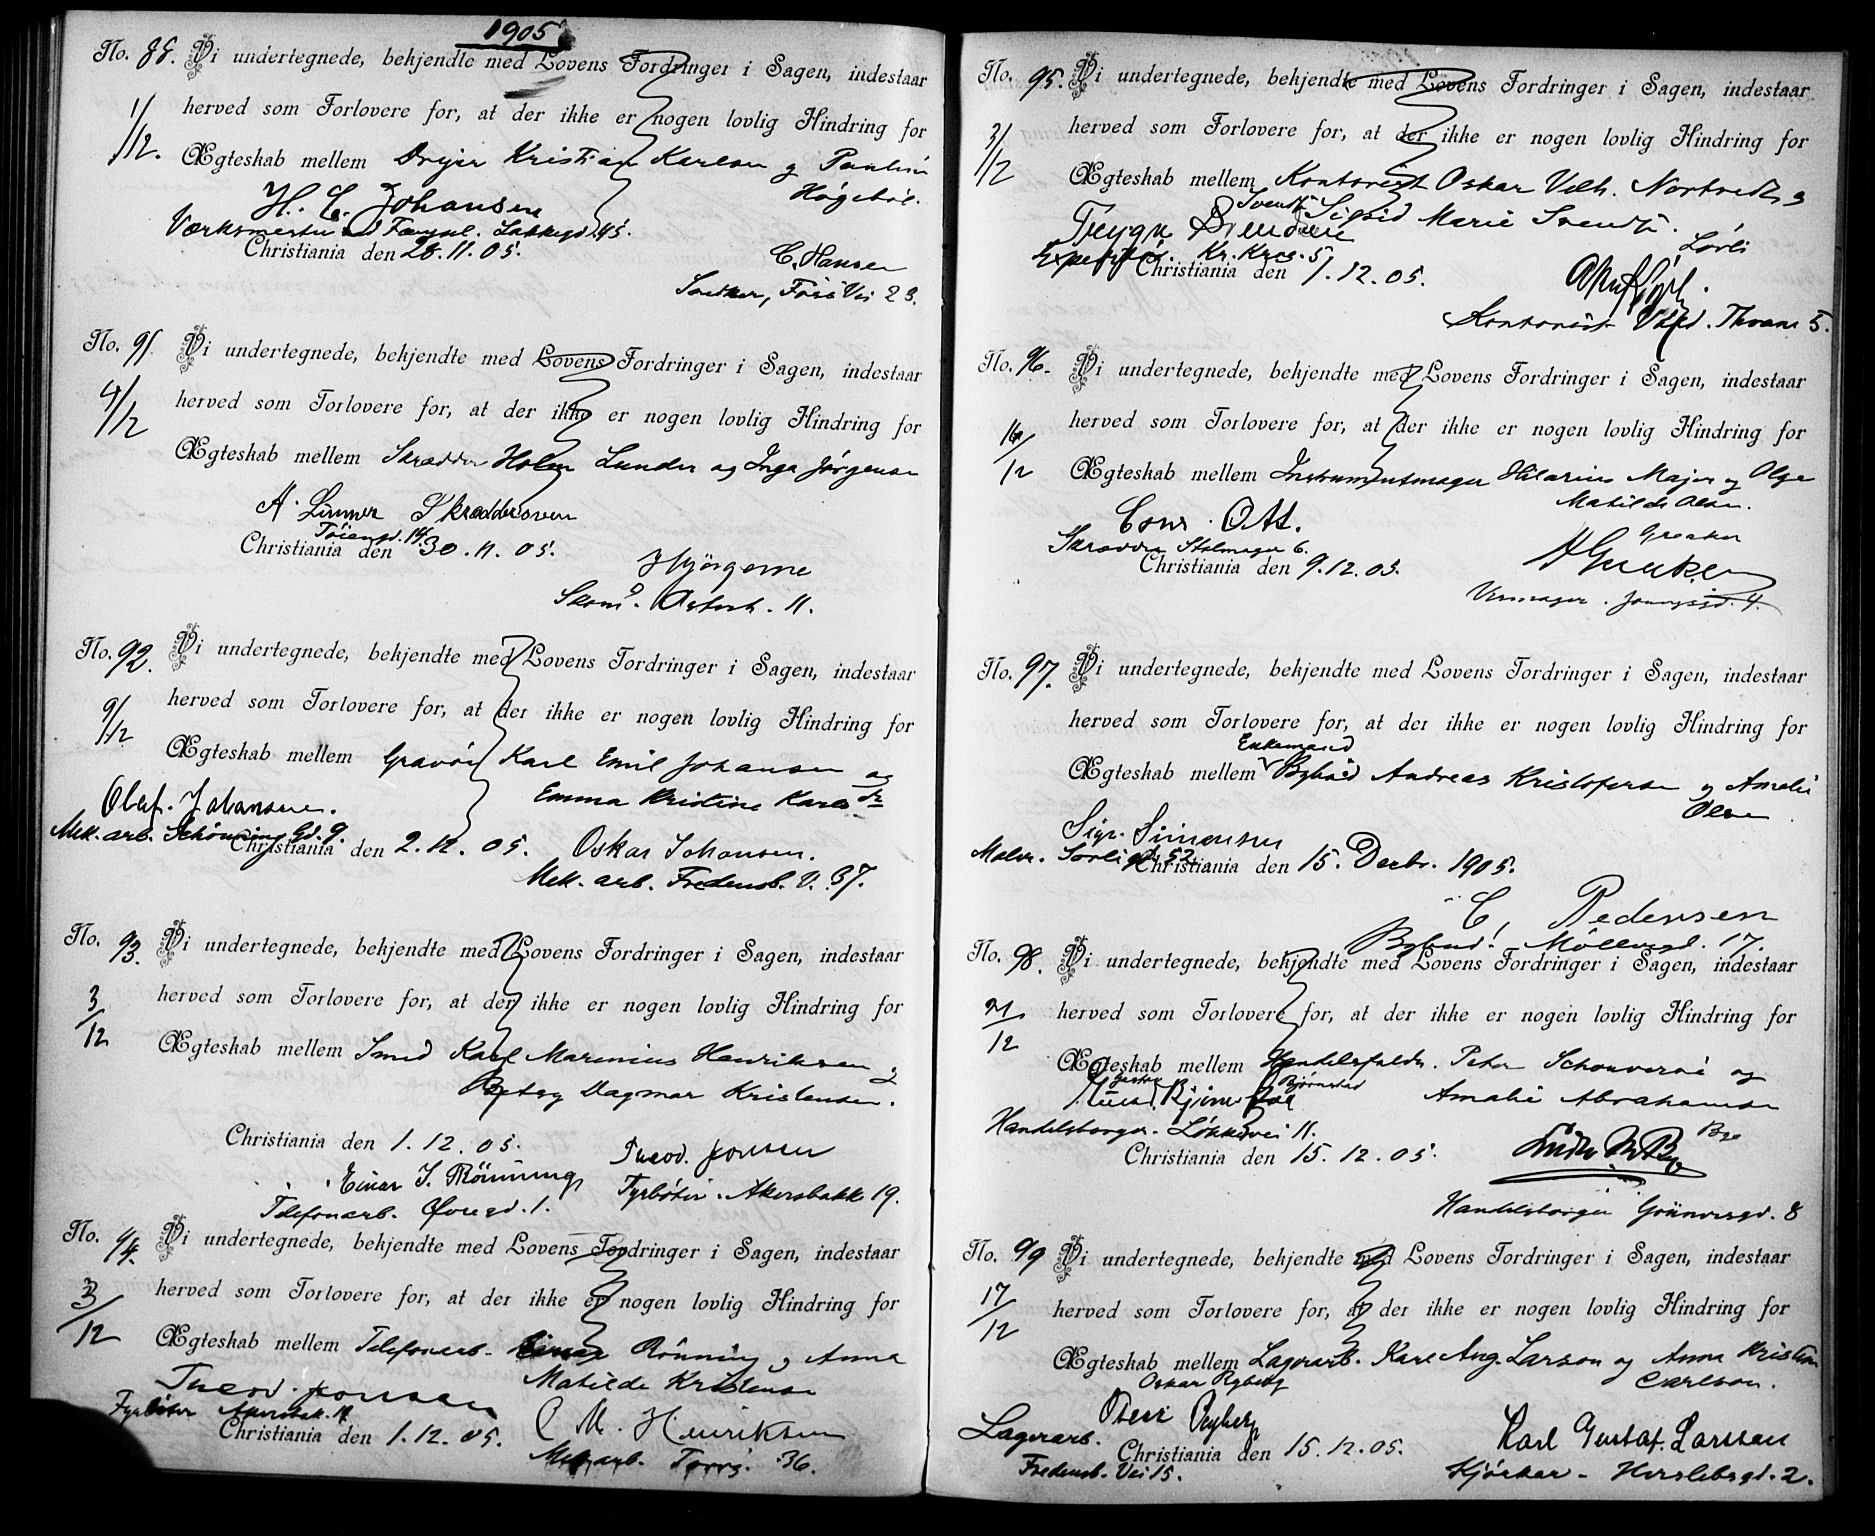 1905
No. 88. Vi undertegnede, bekjendte med Lovens Fordringer i Sagen, indestaar
1/12. herved som Forlovere for, at der ikke er nogen lovlig Hindring for
Ægteskab mellem Drejer Kristian Karlsen og Pauline
Høgebøl.
H. E. Johansen
Værksmester ved Fængsl. Lakkegd. 45.
Christiania den 28.11.05.
C. Hansen
Snedker, Fossvei 23.
No. 91 Vi undertegnede, bekjendte med Lovens Fordringer i Sagen, indestaar
4/12 herved som Forlovere for, at der ikke er nogen lovlig Hindring for
Ægteskab mellem Skrædder Holm Lunder og Inga Jørgensen
A. Linner Skræddersven
Tøiengd. 14.
Christiania den 30.11.05.
H Jörgense
Skom. Osterh. 11.
No. 92. Vi undertegnede, bekjendte med Lovens Fordringer i Sagen, indestaar
9/12 herved som Forlovere for, at der ikke er nogen lovlig Hindring for
Ægteskab mellem Gravør Karl Emil Johansen og
Emma Kristine Karlsdr
Olaf. Johansen.
Mek. arb. Schönning Gd. 9.
Christiania den 2.12.05.
Oskar Johansen.
Mek. arb. Fredensb. V. 37.
No. 93. Vi undertegnede, bekjendte med Lovens Fordringer i Sagen, indestaar
3/12 herved som Forlovere for, at der ikke er nogen lovlig Hindring for
Ægteskab mellem Smed Karl Marinius Henriksen og
Betsy Dagmar Kristensen.
Christiania den 1.12.05.
Teod. Jonssen
Einar J. Rönning
Fyrbøter. Akersbakk 19.
Telefonarb. Øvregd. 1.
No. 94. Vi undertegnede, bekjendte med Lovens Fordringer i Sagen, indestaar
3/12 herved som Forlovere for, at der ikke er nogen lovlig Hindring for
Ægteskab mellem Telefonarb. Einar Rönning og Anna
Matilde Kristensen
Teod. Jonssen
Fyrbøter Akersbak. 19
Christiania den 1.12.05.
C M. Henriksen
Mek. arb. Torvg. 36.
No. 95. Vi undertegnede, bekjendte med Lovens Fordringer i Sagen, indestaar
3/12 herved som Forlovere for, at der ikke er nogen lovlig Hindring for
Ægteskab mellem Kontorist Oskar Vilh. Nortvedt og
Sigrid Marie Svendsen.
Trygve Svendsen
Expeditør. Kr. Kros. 5
Christiania den 1.12.05.
Løvli
Kontorist Vilhd. Thrane 5.
No. 96. Vi undertegnede, bekjendte med Lovens Fordringer i Sagen, indestaar
16/12 herved som Forlovere for, at der ikke er nogen lovlig Hindring for
Ægteskab mellem Instrumentmager Hilarius Majer og Olga
Matilde Olsen.
Conr. Ott.
Skrædder Stolmager 6.
Christiania den 9.12.05.
Greaker
A Greaker
Urmager. Youngsgd. 4.
No. 97. Vi undertegnede, bekjendte med Lovens Fordringer i Sagen, indestaar
herved som Forlovere for, at der ikke er nogen lovlig Hindring for
Enkemand
Ægteskab mellem Bybud Andreas Kristofersen og Amalie
Olsen
Sigv. Simensen
Maler. Sorligd. 52
Christiania den 15. Decbr. 1905.
C. Pedersen
Bybud! Möllergd. 17.
No. 98. Vi undertegnede, bekjendte med Lovens Fordringer i Sagen, indestaar
21/12 herved som Forlovere for, at der ikke er nogen lovlig Hindring for
Ægteskab mellem Handelsfuldm. Peter Schouverøe og
Amalie Abrahamsen
Bjørnstad
Handelsborger. Løkkevei 11.
Christiania den 15.12.05.
Bye
Handelsborger Grünersgd. 8
No. 99 Vi undertegnede, bekjendte med Lovens Fordringer i Sagen, indestaar
17/12 herved som Forlovere for, at der ikke er nogen lovlig Hindring for
Ægteskab mellem Lagerarb. Karl Aug. Larson og Anna Kristina
Carlson.
Oskar Ryberg
Oscar Ryberg
Lagerarb.
Fredensb. Vei 15.
Christiania den 15.12.05.
Karl Gustaf. Larsson
Kjørekar - Herslebsgd. 2.